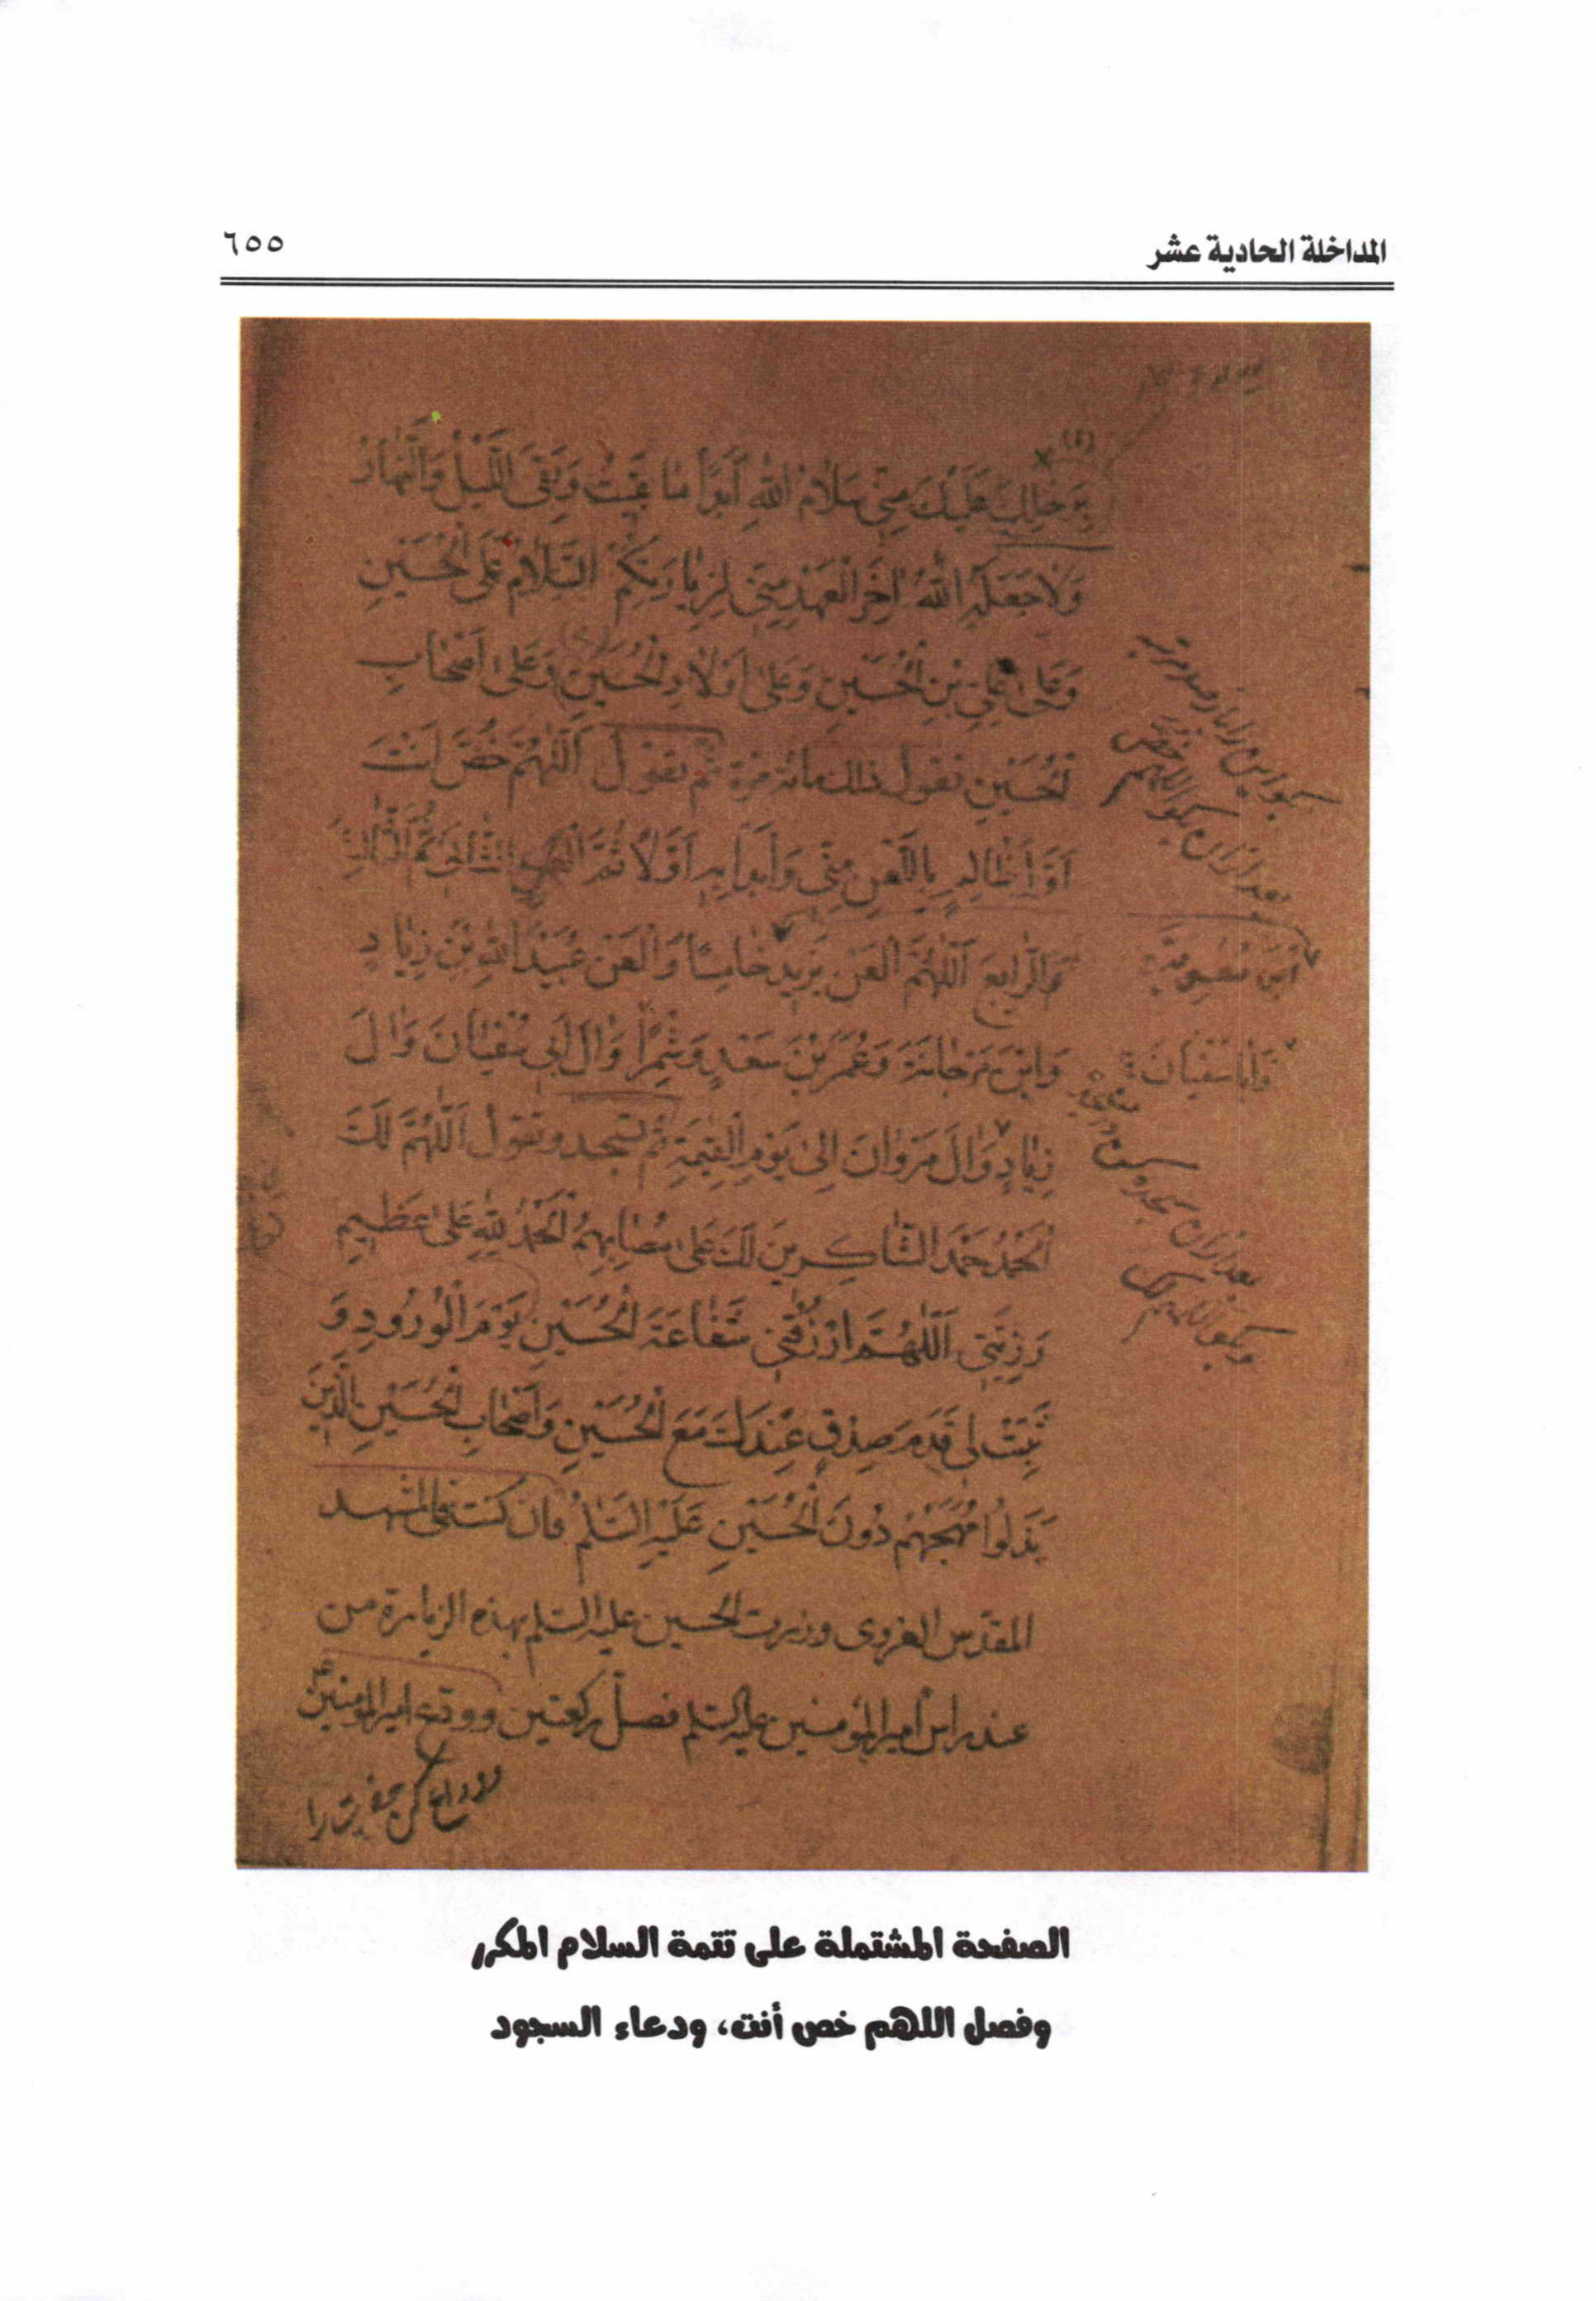 المداخلة الحادية عشر
٦٥٥
بِرَحْلِكَ عَلَيْكَ مِنّي سَلامُ اللهِ أَبَداً ما بَقيتُ وَبَقِيَ اللَّيْلُ وَالنَّهارُ
وَلا جَعَلَهُ اللهُ اخِرَ الْعَهْدِ مِنّي لِزِيارَتِكُمْ السَّلامُ عَلَى الْحُسَيْنِ
وَعَلى عَلِيِّ بْنِ الْحُسَيْنِ وَعَلى اَوْلادِ الْحُسَيْنِ وَعَلى اَصْحابِ
الْحُسَيْنِ تقول ذلك مائة مرة ثم تقول اَللّهُمَّ خُصَّ اَنْتَ
اَوَّلَ ظالِمٍ بِاللَّعْنِ مِنّي وَابْدَأْ بِهِ اَوَّلاً ثُمَّ الثّانِيَ ثُمَّ الثّالِثَ
وَالرّابِعَ اَللّهُمَّ الْعَنْ يَزيدَ خامِسًا وَالْعَنْ عُبَيْدَ اللهِ بْنَ زِيادٍ
ابْنَ مُعوِيَةَ
وَابْنَ مَرْجانَةَ وَعُمَرَ بْنَ سَعْدٍ وَشِمْرًا وَالَ اَبي سُفْيانَ وَالَ
وَاَبا سُفْيانَ
زِيادٍ وَالَ مَرْوانَ اِلى يَوْمِ الْقِيمَةِ ثم تسجد وتقول اَللّهُمَّ لَكَ
الْحَمْدُ حَمْدَ الشّاكِرينَ لَكَ عَلى مُصابِهِمْ اَلْحَمْدُ لِلّهِ عَلى عَظيمِ
رَزِيَّتي اَللّهُمَّ ارْزُقْني شَفاعَةَ الْحُسَيْنِ يَوْمَ الْوُرُودِ وَ
ثَبِّتْ لي قَدَمَ صِدْقٍ عِنْدَكَ مَعَ الْحُسَيْنِ وَاَصْحابِ الْحُسَيْنِ الَّذينَ
بَذَلُوا مُهَجَهُمْ دُونَ الْحُسَيْنِ عَلَيْهِ السَّلمُ فان كنت في المشهد
المقدس الغروى وزرت الحسين عليه السلم بهذه الزيارة من
عند راس امير المؤمنين عليه السلم فصل ركعتين وودع امير المؤمنين
الصفحة المشتملة على تتمة السلام المكرر
وفصل اللهم خص أنت، ودعاء السجود